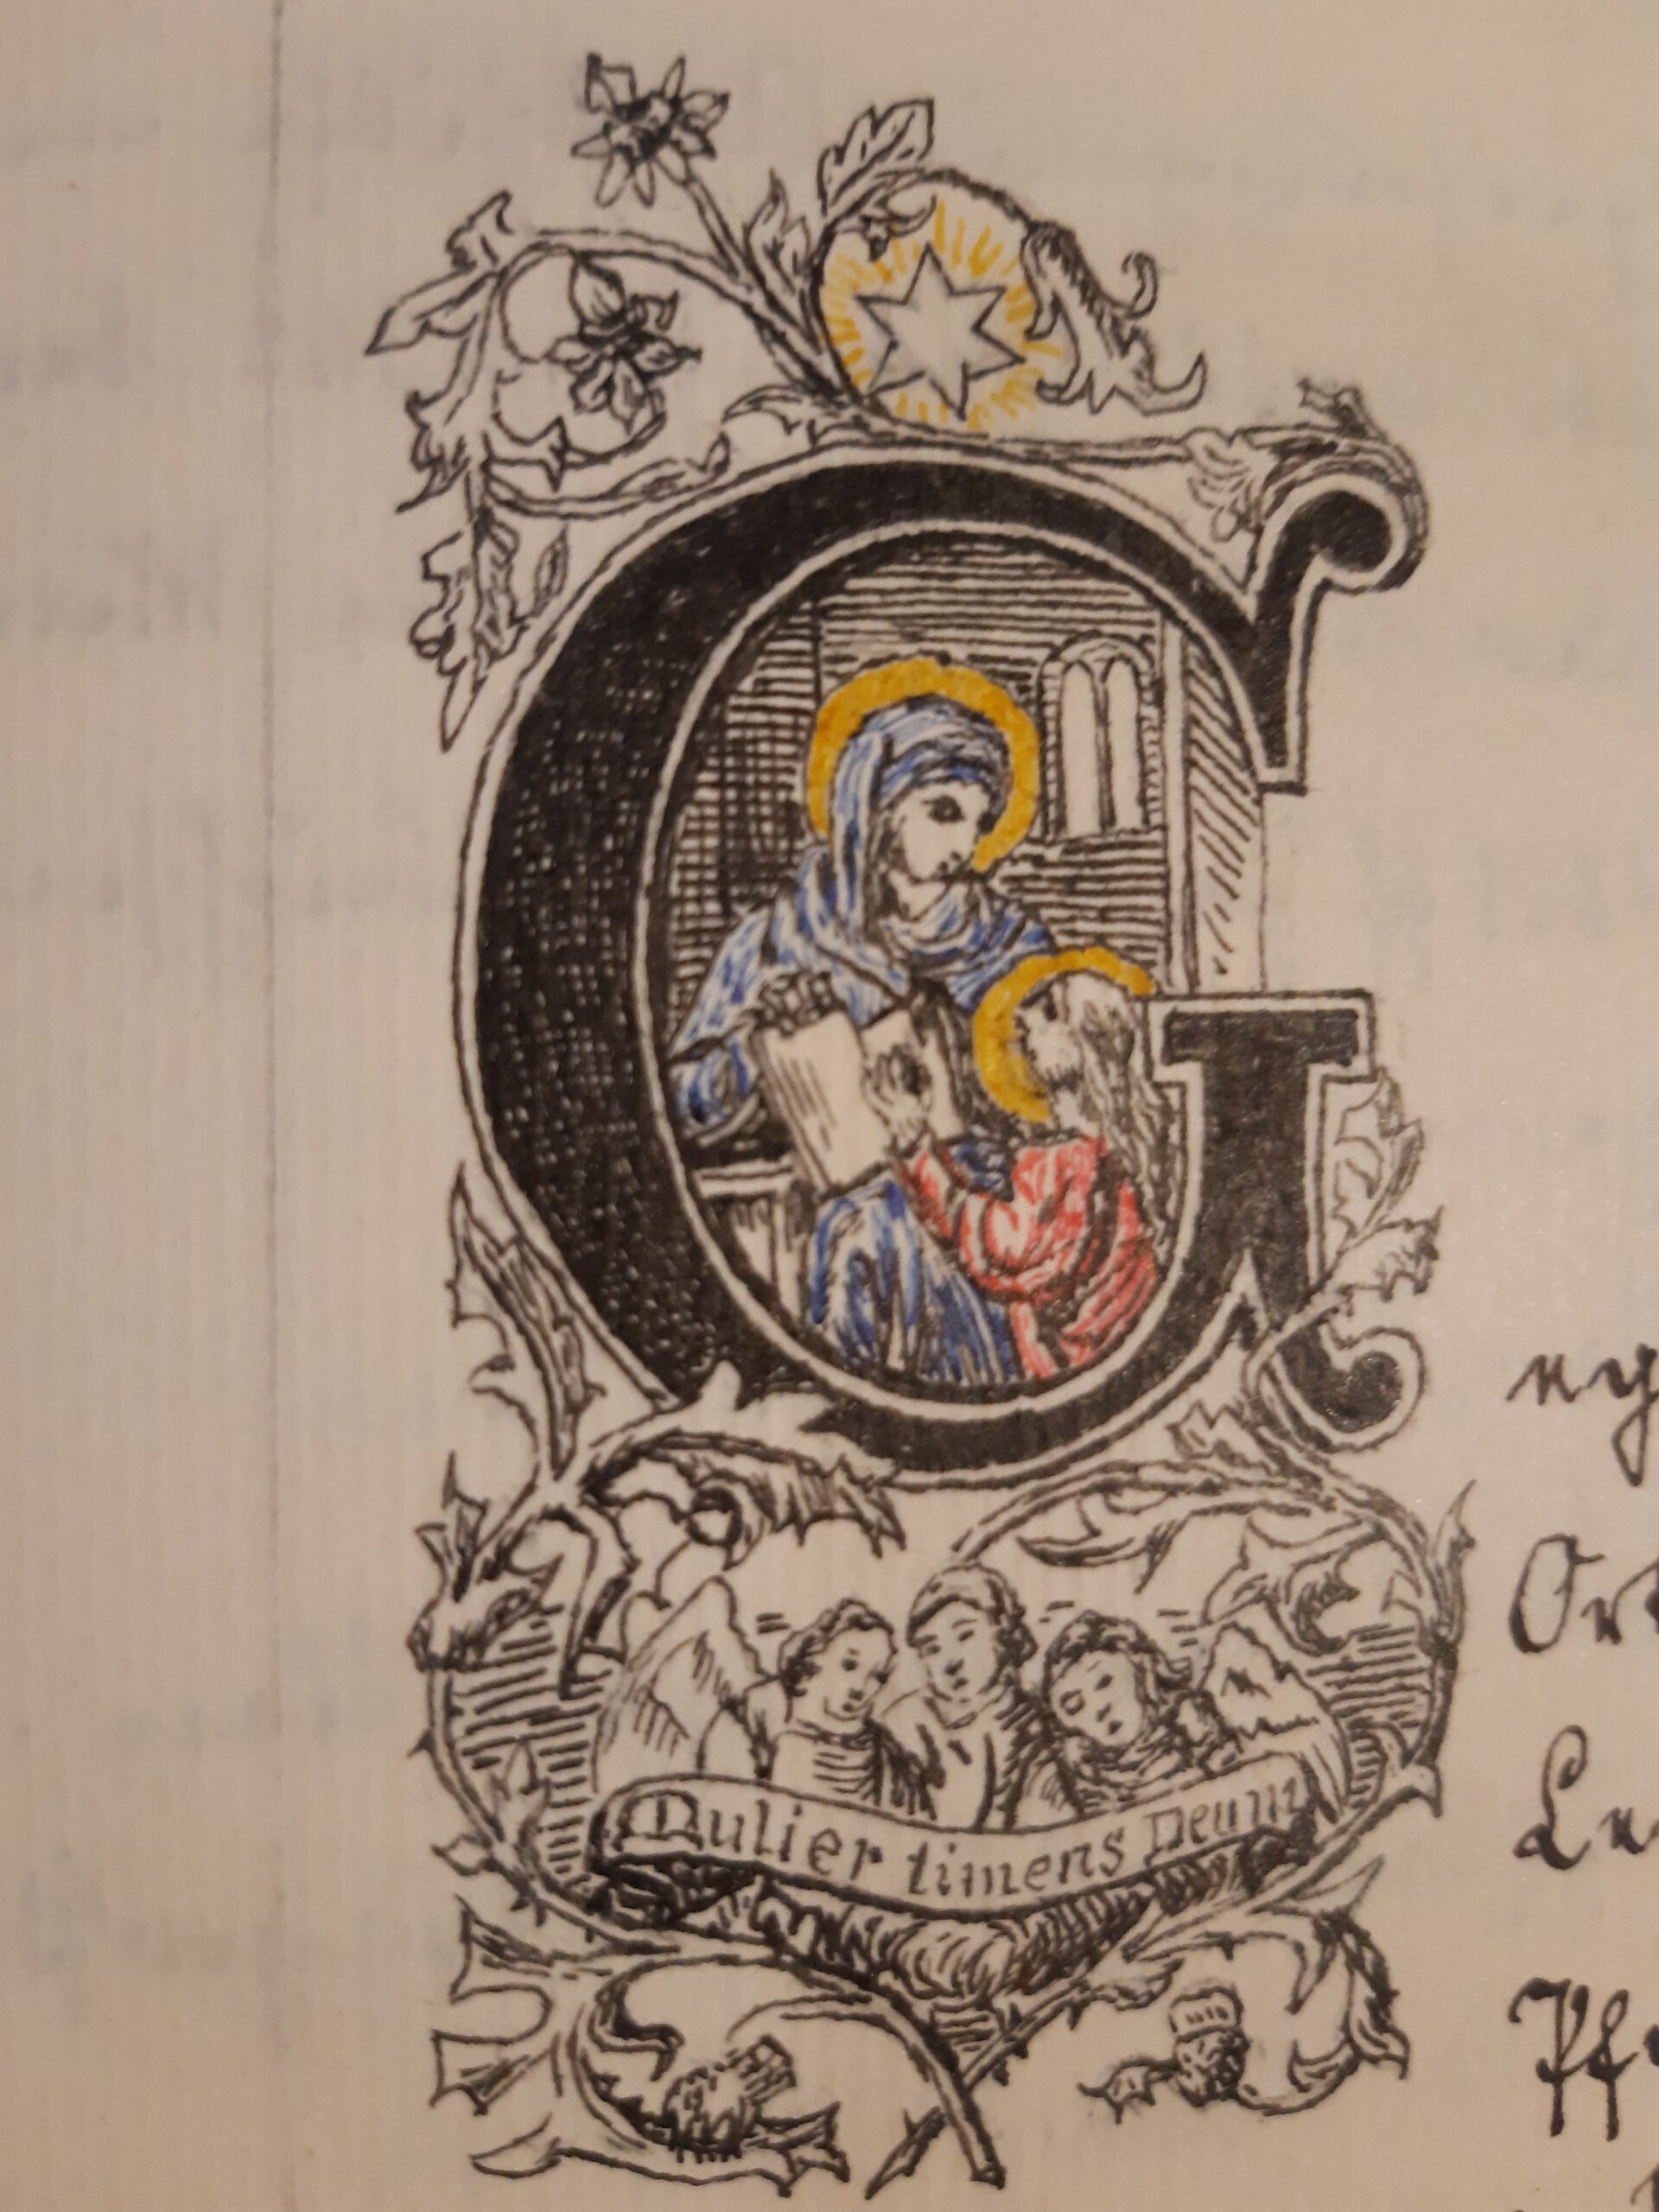 G
Mulier timens Deum
ny
Or
Le
Pf